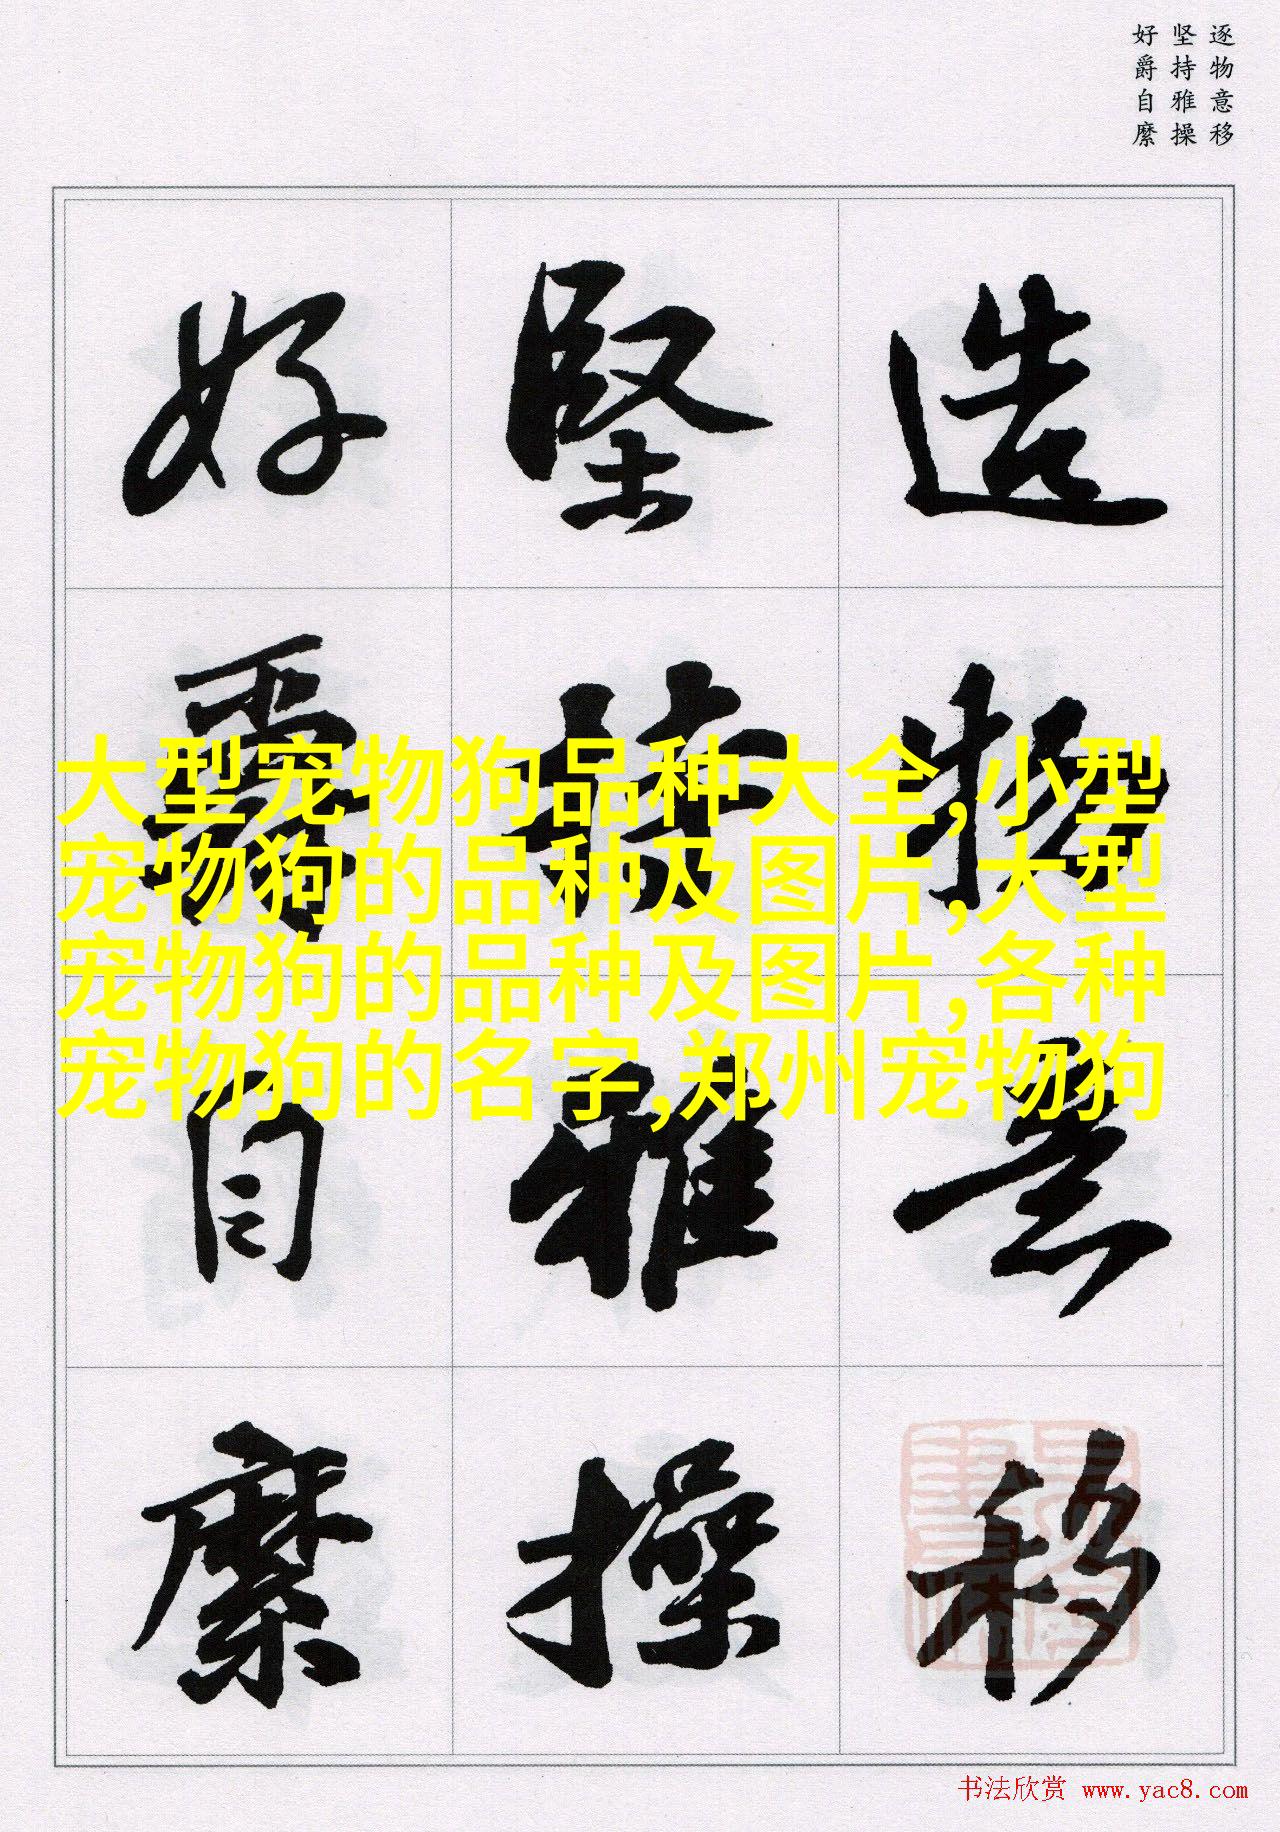 逐物意移
坚持雅操
好爵自縻
造物意移
堅持雅操
好爵自縻
大型宠物狗品种大全,小型
宠物狗的品种及图片,大型
宠物狗的品种及图片,各种
宠物狗的名字,郑州宠物狗
书法欣赏 www.yac8.com